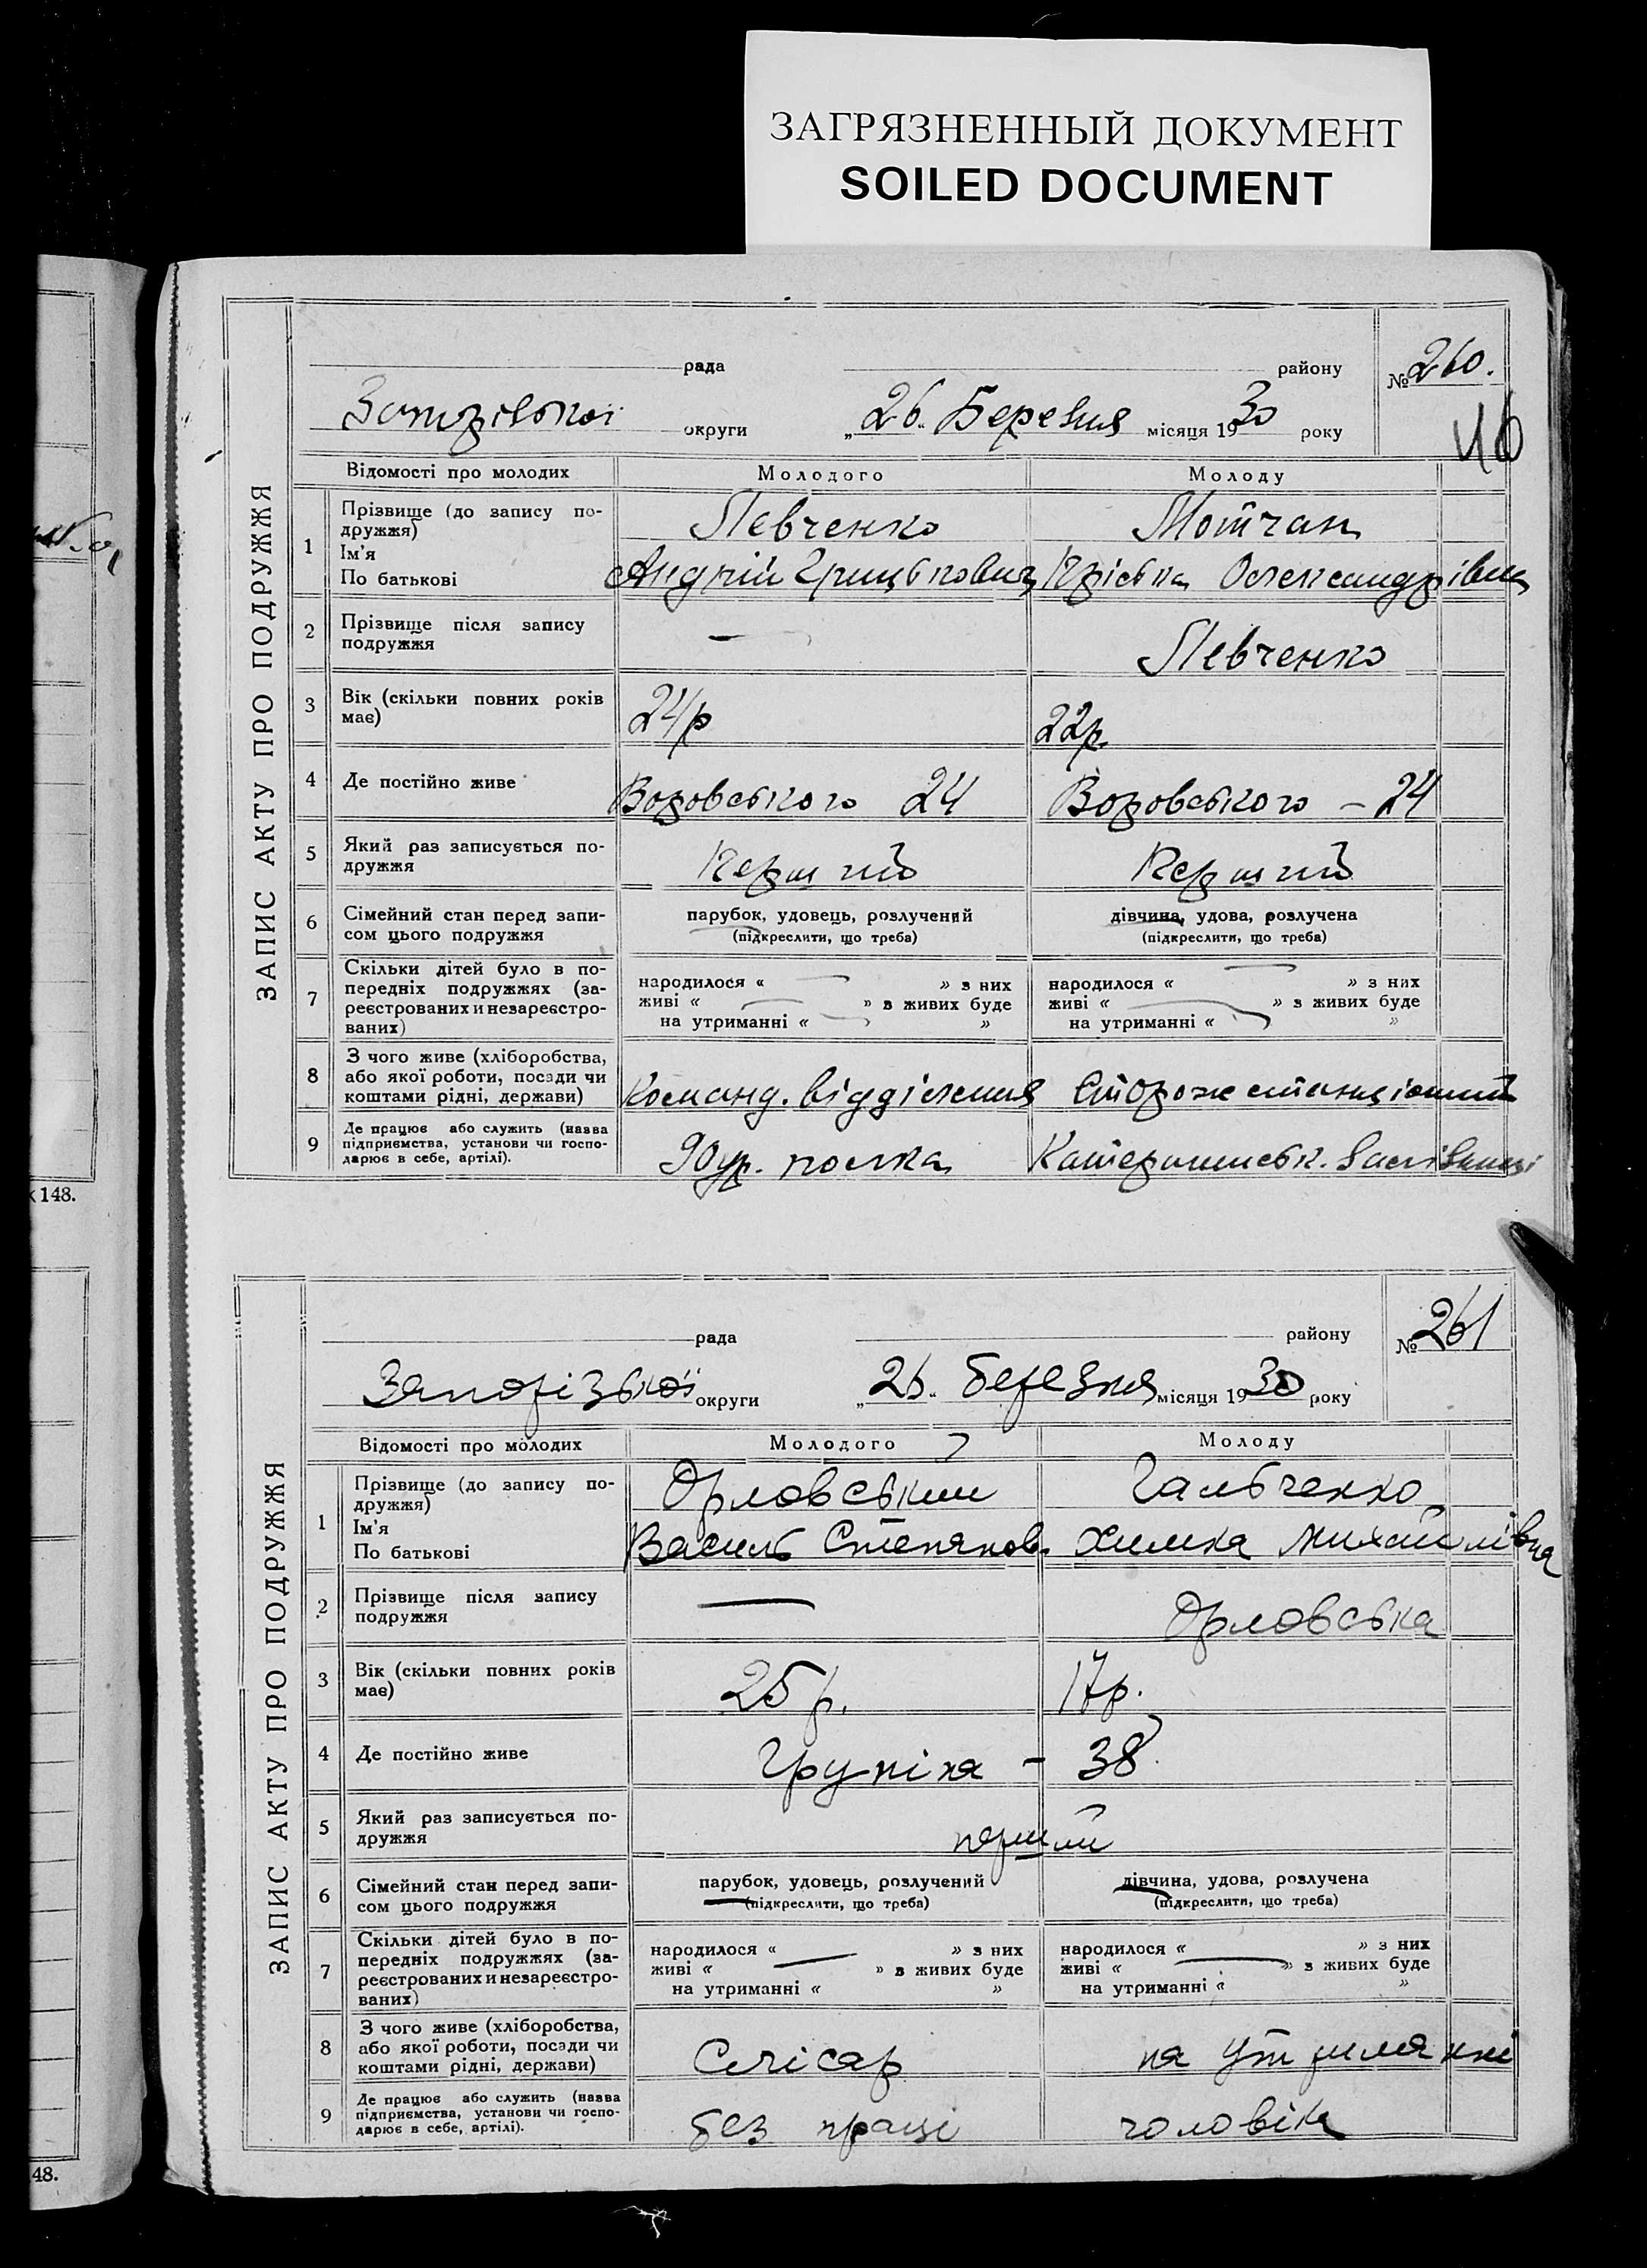 ЗАГРЯЗНЕННЫЙ ДОКУМЕНТ
SOILED DOCUMENT
ЗАПИС АКТУ ПРО ПОДРУЖЖЯ
рада району № 260.
округи „26„ Березня місяця 1930 року
46
Відомості про молодих Молодого Молоду
1 Прізвище (до запису по-
дружжя)
Левченко Мотчан
Ім'я
По батькові
Андрій Грицькович Олександрівна
2 Прізвище після запису
подружжя
— Левченко
3 Вік (скільки повних років
має)
24р 22р.
4 Де постійно живе Воровського 24 Воровського – 24
5 Який раз записується по-
дружжя
Перший Перший
6 Сімейний стан перед запи-
сом цього подружжя
парубок, удовець, розлучений дівчина, удова, розлучена
(підкреслити, що треба) (підкреслити, що треба)
7 Скільки дітей було в по-
передніх подружжях (за-
реєстрованих и незареєстро-
ваних)
народилося « — » з них народилося « — » з них
живі « — » в живих буде живі « — » з живих буде
на утриманні « — » на утриманні « — »
8 З чого живе (хліборобства,
або якої роботи, посади чи
коштами рідні, держави)
Команд. відділення Сторож станціонний
9 Де працює або служить (назва
підприємства, установи чи госпо-
дарює в себе, артілі).
90 полка
148.
ЗАПИС АКТУ ПРО ПОДРУЖЖЯ
рада району № 261
Запорізької округи „26„ березня місяця 1930 року
Відомості про молодих Молодого Молоду
1 Прізвище (до запису по-
дружжя)
Орловський Гальченко
Ім'я
По батькові
Василь Степанов. Химка Михайлівна
2 Прізвище після запису
подружжя
— Орловська
3 Вік (скільки повних років
має)
25 р. 17р.
4 Де постійно живе – 38
5 Який раз записується по-
дружжя
перший
6 Сімейний стан перед запи-
сом цього подружжя
парубок, удовець, розлучений дівчина, удова, розлучена
(підкреслити, що треба) (підкреслити, що треба)
7 Скільки дітей було в по-
передніх подружжях (за-
реєстрованих и незареєстро-
ваних)
народилося « — » з них народилося « — » з них
живі « » в живих буде живі « » з живих буде
на утриманні « » на утриманні « »
8 З чого живе (хліборобства,
або якої роботи, посади чи
коштами рідні, держави)
Слісар на утриманні
9 Де працює або служить (назва
підприємства, установи чи госпо-
дарює в себе, артілі).
без праці чоловіка
48.